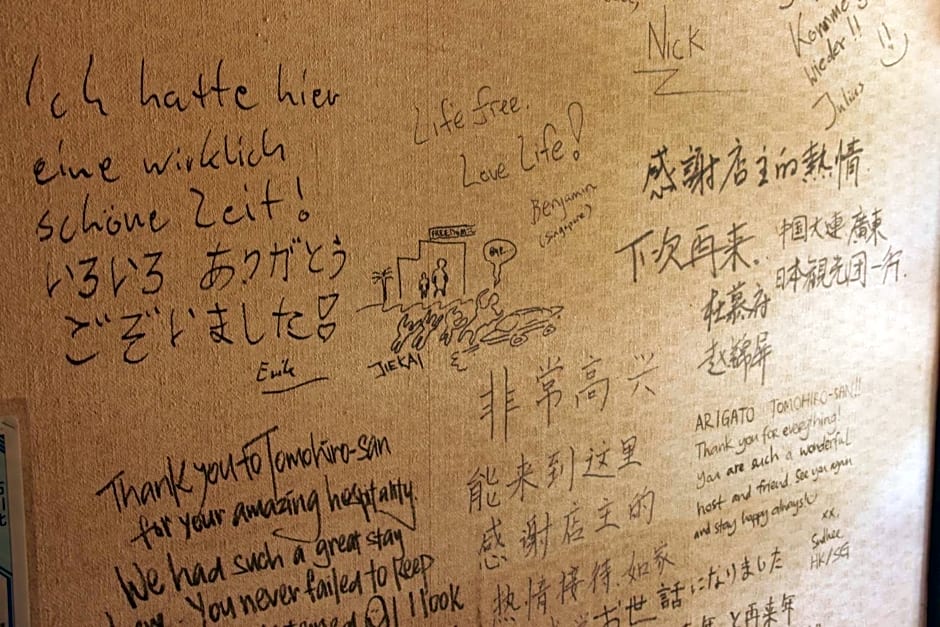 Ich hatte hier
eine wirklich
schöne Zeit!
いろいろ ありがとう
ございました!
Erik
Life free.
Love Life!
Benjamin
(Singapore)
Nick
Komme
wieder!!
Julius
感謝店主的熱情
下次再来.
中国大連 廣東
日本観光团一行.
杜慕府
越錦屏
FREEDOM
JIEKAI
非常高兴
能来到这里
感谢店主的
热情接待.如家
お世話になりました
年と再来年
ARIGATO TOMOHIRO-SAN!!
Thank you for everything!
You are such a wonderful
host and friend. See you again
and stay happy always
xx.
HK/SG
Thank you to Tomohiro-san
for your amazing hospitality.
We had such a great stay
You never failed to keep
I look